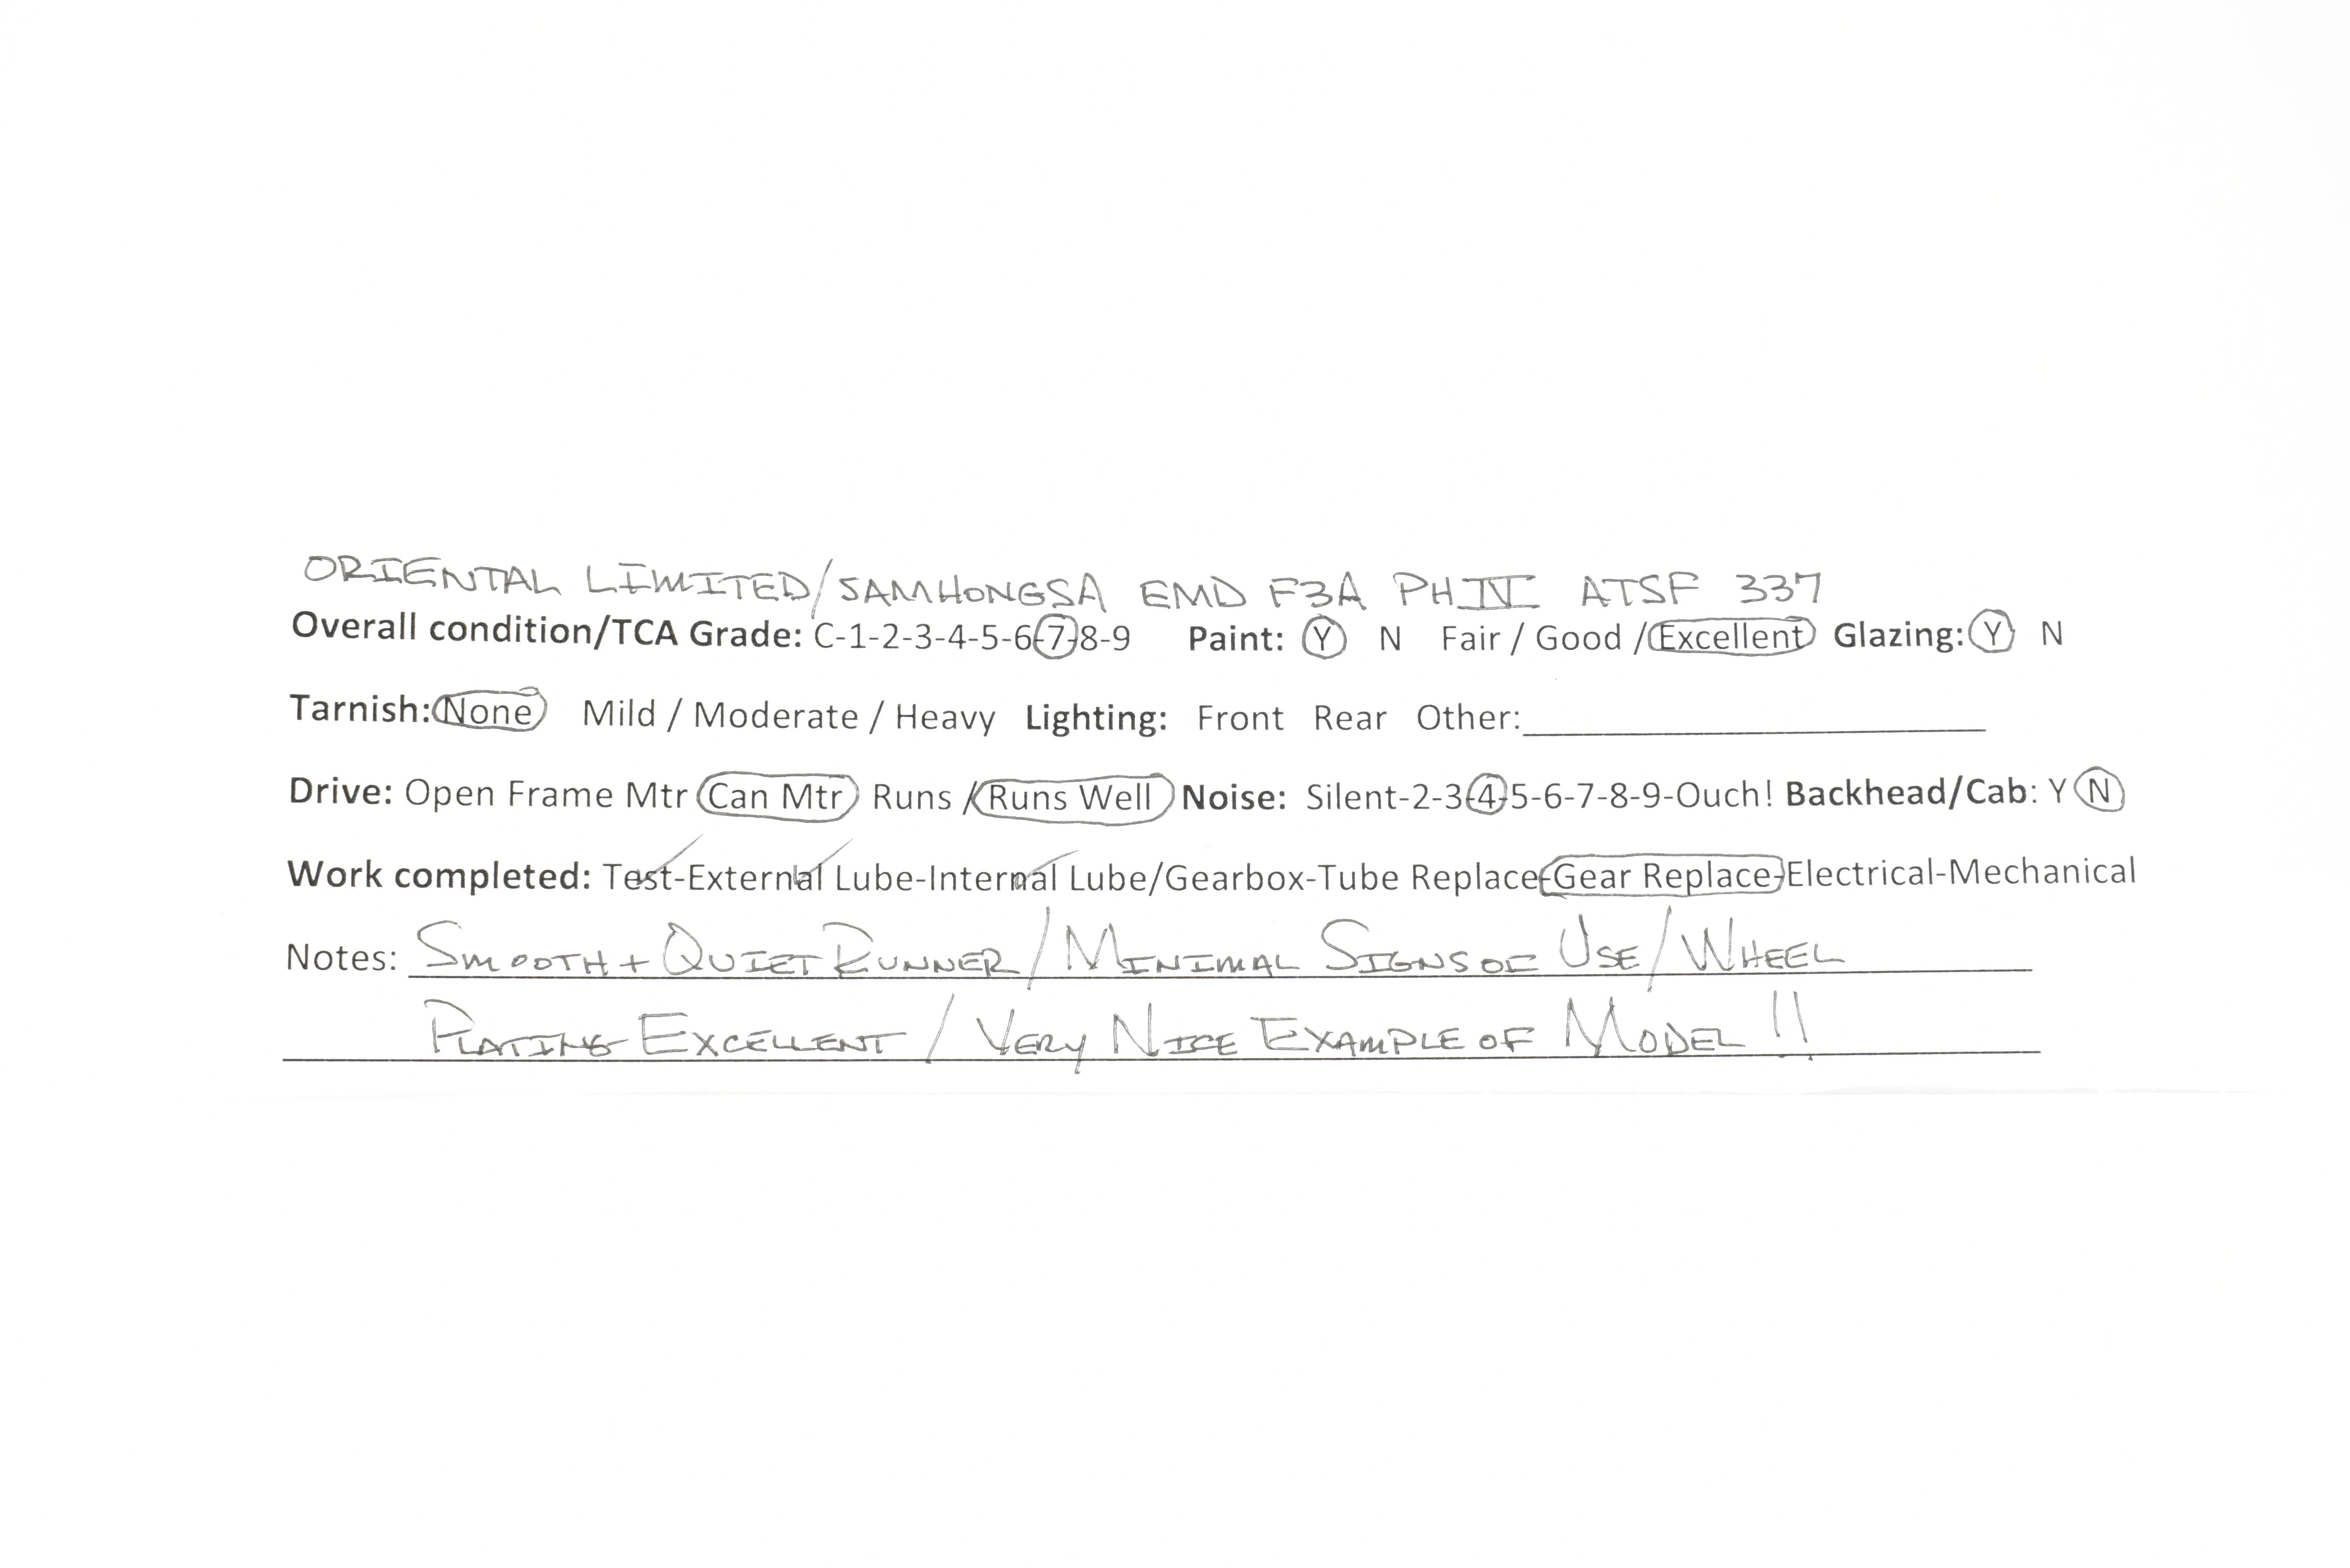 ORIENTAL LIMITED/SAMHONGSA EMD F3A PH IV ATSF 337
Overall condition/TCA Grade: C-1-2-3-4-5-6-7-8-9 Paint: Y N Fair / Good / Excellent Glazing: Y N
Tarnish: None Mild / Moderate / Heavy Lighting: Front Rear Other:
Drive: Open Frame Mtr Can Mtr Runs / Runs Well Noise: Silent-2-3-4-5-6-7-8-9-Ouch! Backhead/Cab: Y N
Work completed: Test-External Lube-Internal Lube/Gearbox-Tube Replace-Gear Replace-Electrical-Mechanical
Notes: SMOOTH + QUIET RUNNER / MINIMAL SIGNS OF USE / WHEEL
PLATING EXCELLENT / VERY NICE EXAMPLE OF MODEL !!